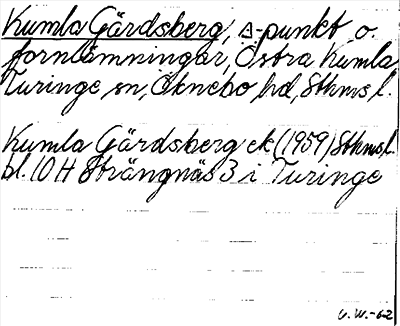 Kumla Gärdsberg, s-punkt o.
fornlämningar, Östra Kumla,
Turinge sn, Öknebo hd, Sthms l.
Kumla Gärdsberg ek (1959) Sthms l.
bl. 10 H Strängnäs 3 i Turinge
G.W.-62